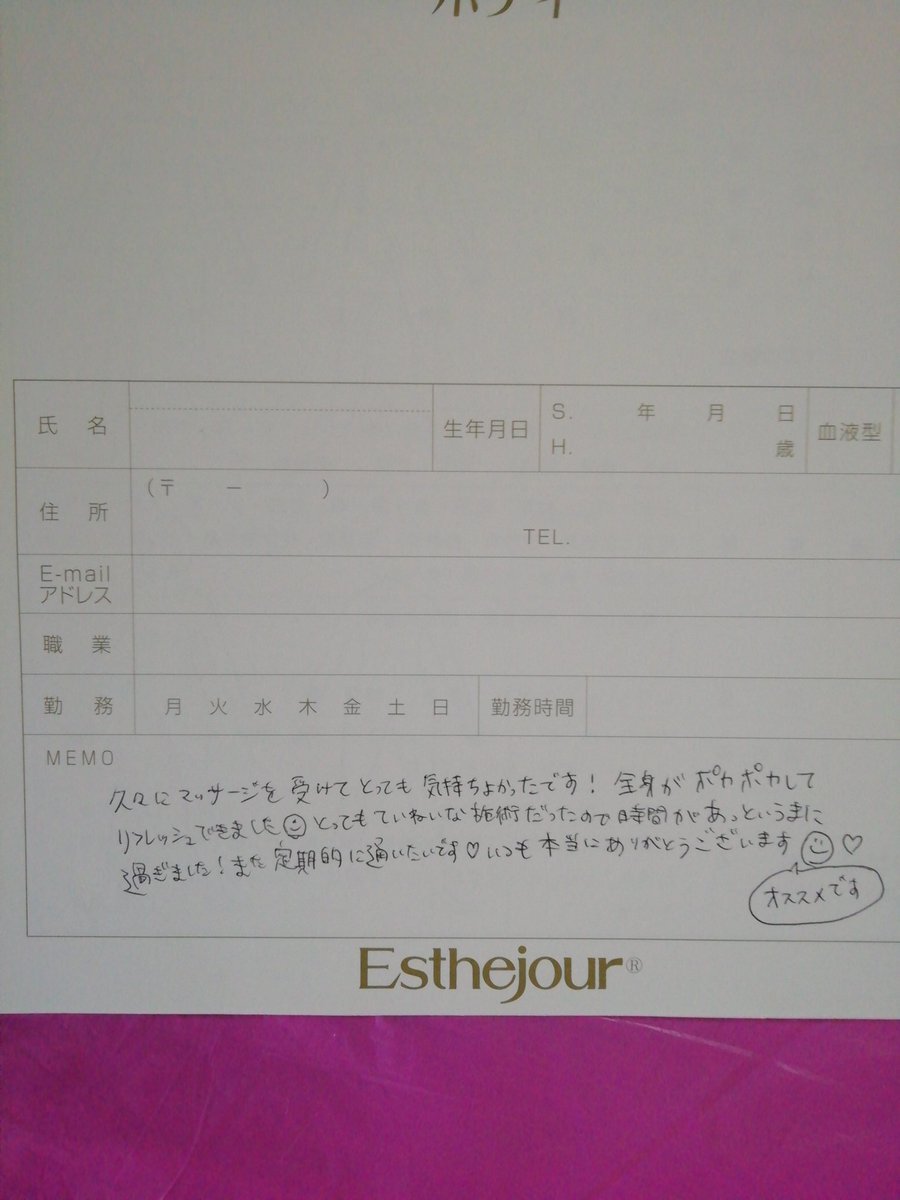 ボディ
氏 名
生年月日
S. 年 月 日
H. 歳
血液型
住 所
(〒 － )
TEL.
E-mail
アドレス
職 業
勤 務
月 火 水 木 金 土 日
勤務時間
MEMO
久々にマッサージを受けてとっても気持ちよかったです！全身がポカポカして
リフレッシュできました とってもていねいな施術だったので時間があっというまに
過ぎました！また定期的に通いたいです♡いつも本当にありがとうございます ♡
オススメです
Esthejour®